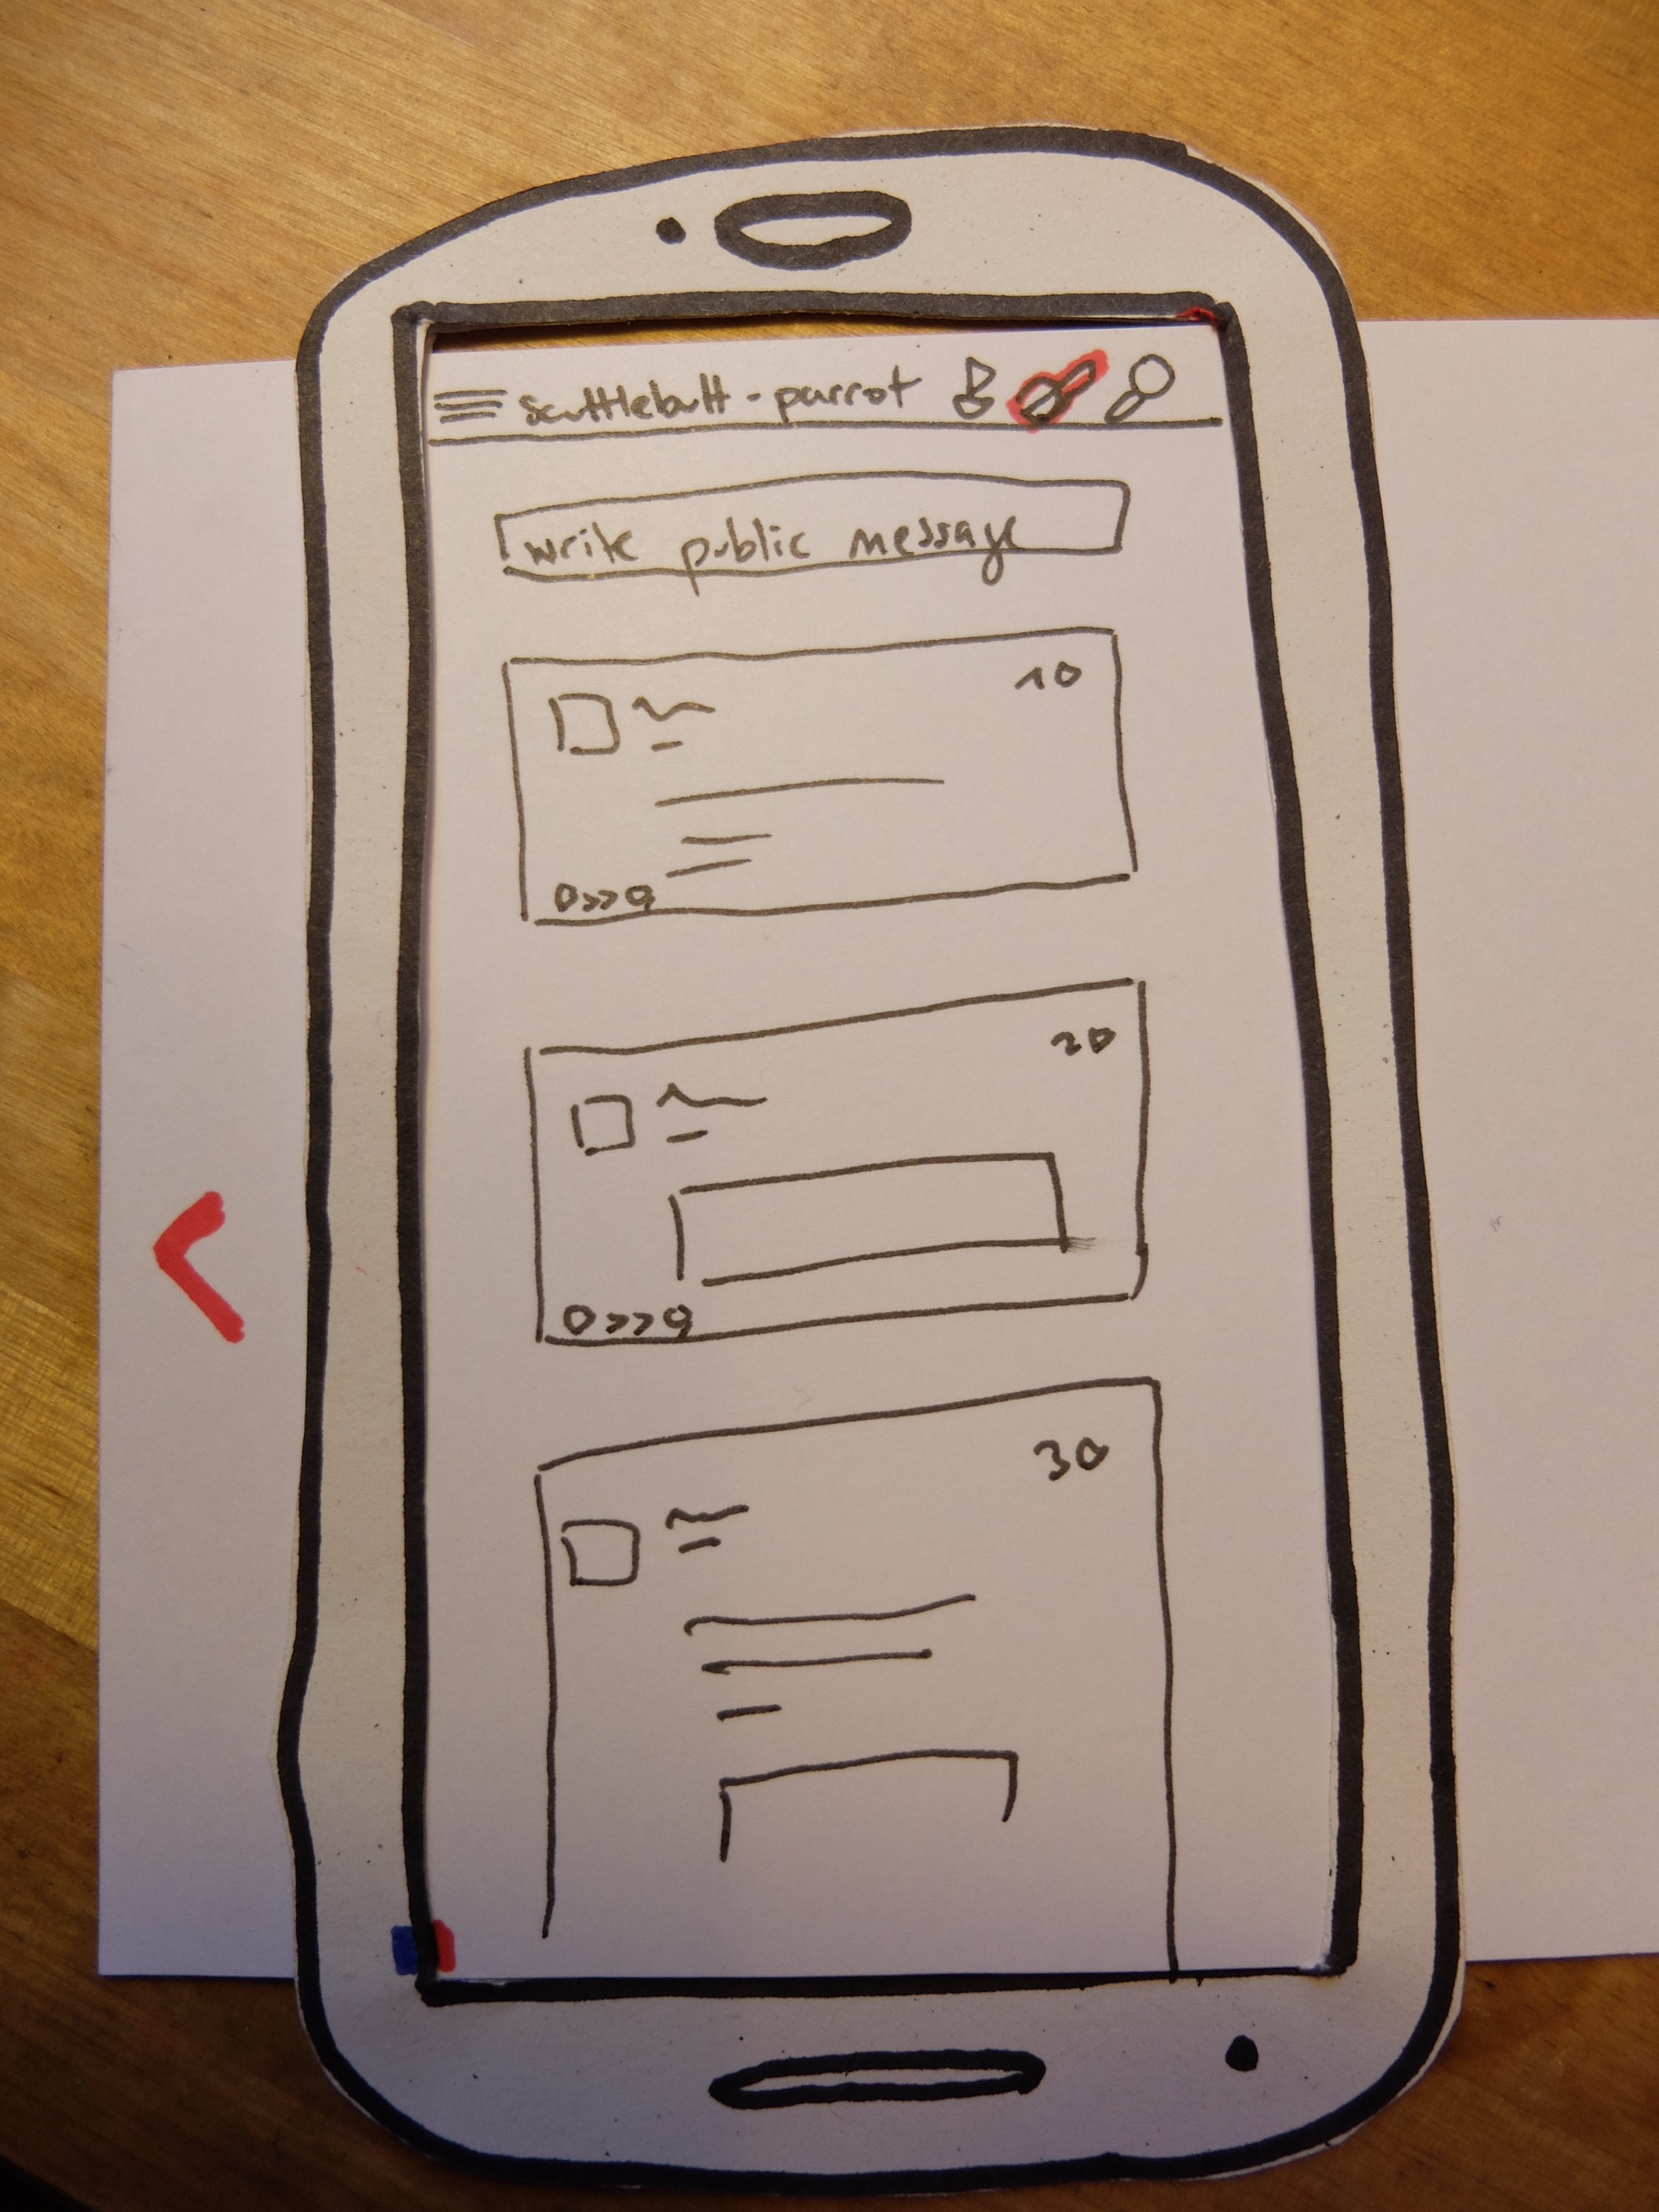 scuttlebutt-parrot
write public message
10
0>>9
20
0>>9
30